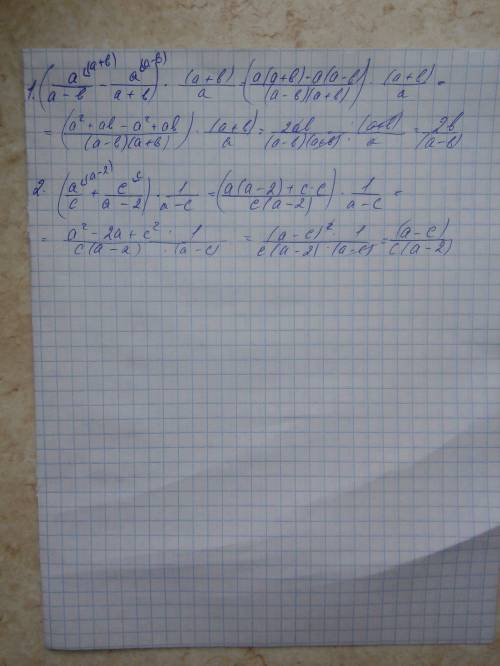 1. (a^{(a+b)}/(a-b) - a^{(a-b)}/(a+b)) · (a+b)/a = (a(a+b)-a(a-b)/(a-b)(a+b)) · (a+b)/a =
= (a²+ab-a²+ab/(a-b)(a+b)) · (a+b)/a = 2ab/(a-b)(a+b) · (a+b)/a = 2b/(a-b)
2. (a^{(a-2)}/c + c^{c}/(a-2)) · 1/(a-c) = (a(a-2)+c·c/c(a-2)) · 1/(a-c) =
= a²-2a+c² · 1/c(a-2) · (a-c) = (a-c)² · 1/c(a-2) · (a-c) = (a-c)/c(a-2)